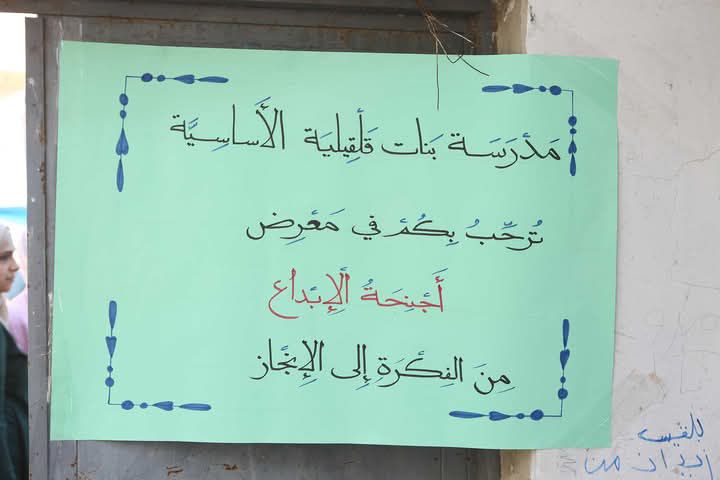 مَدْرَسَة بَنات قَلْقِيلية الأَساسِيَّة
تُرَحِّبُ بِكُمْ في مَعْرِض
أَجْنِحَةُ الْإِبْداع
مِنَ الفِكْرَةِ إِلى الْإِنْجَاز